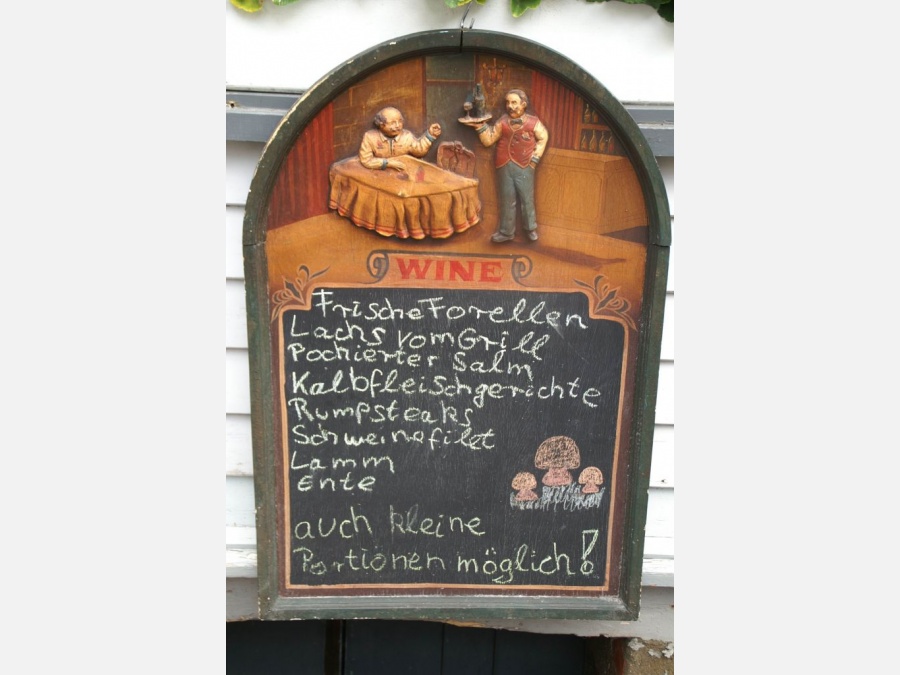 WINE
Frische Forellen
Lachs vom Grill
Pochierter Salm
Kalbfleischgerichte
Rumpsteaks
Schweinefilet
Lamm
Ente
auch kleine
Portionen möglich!